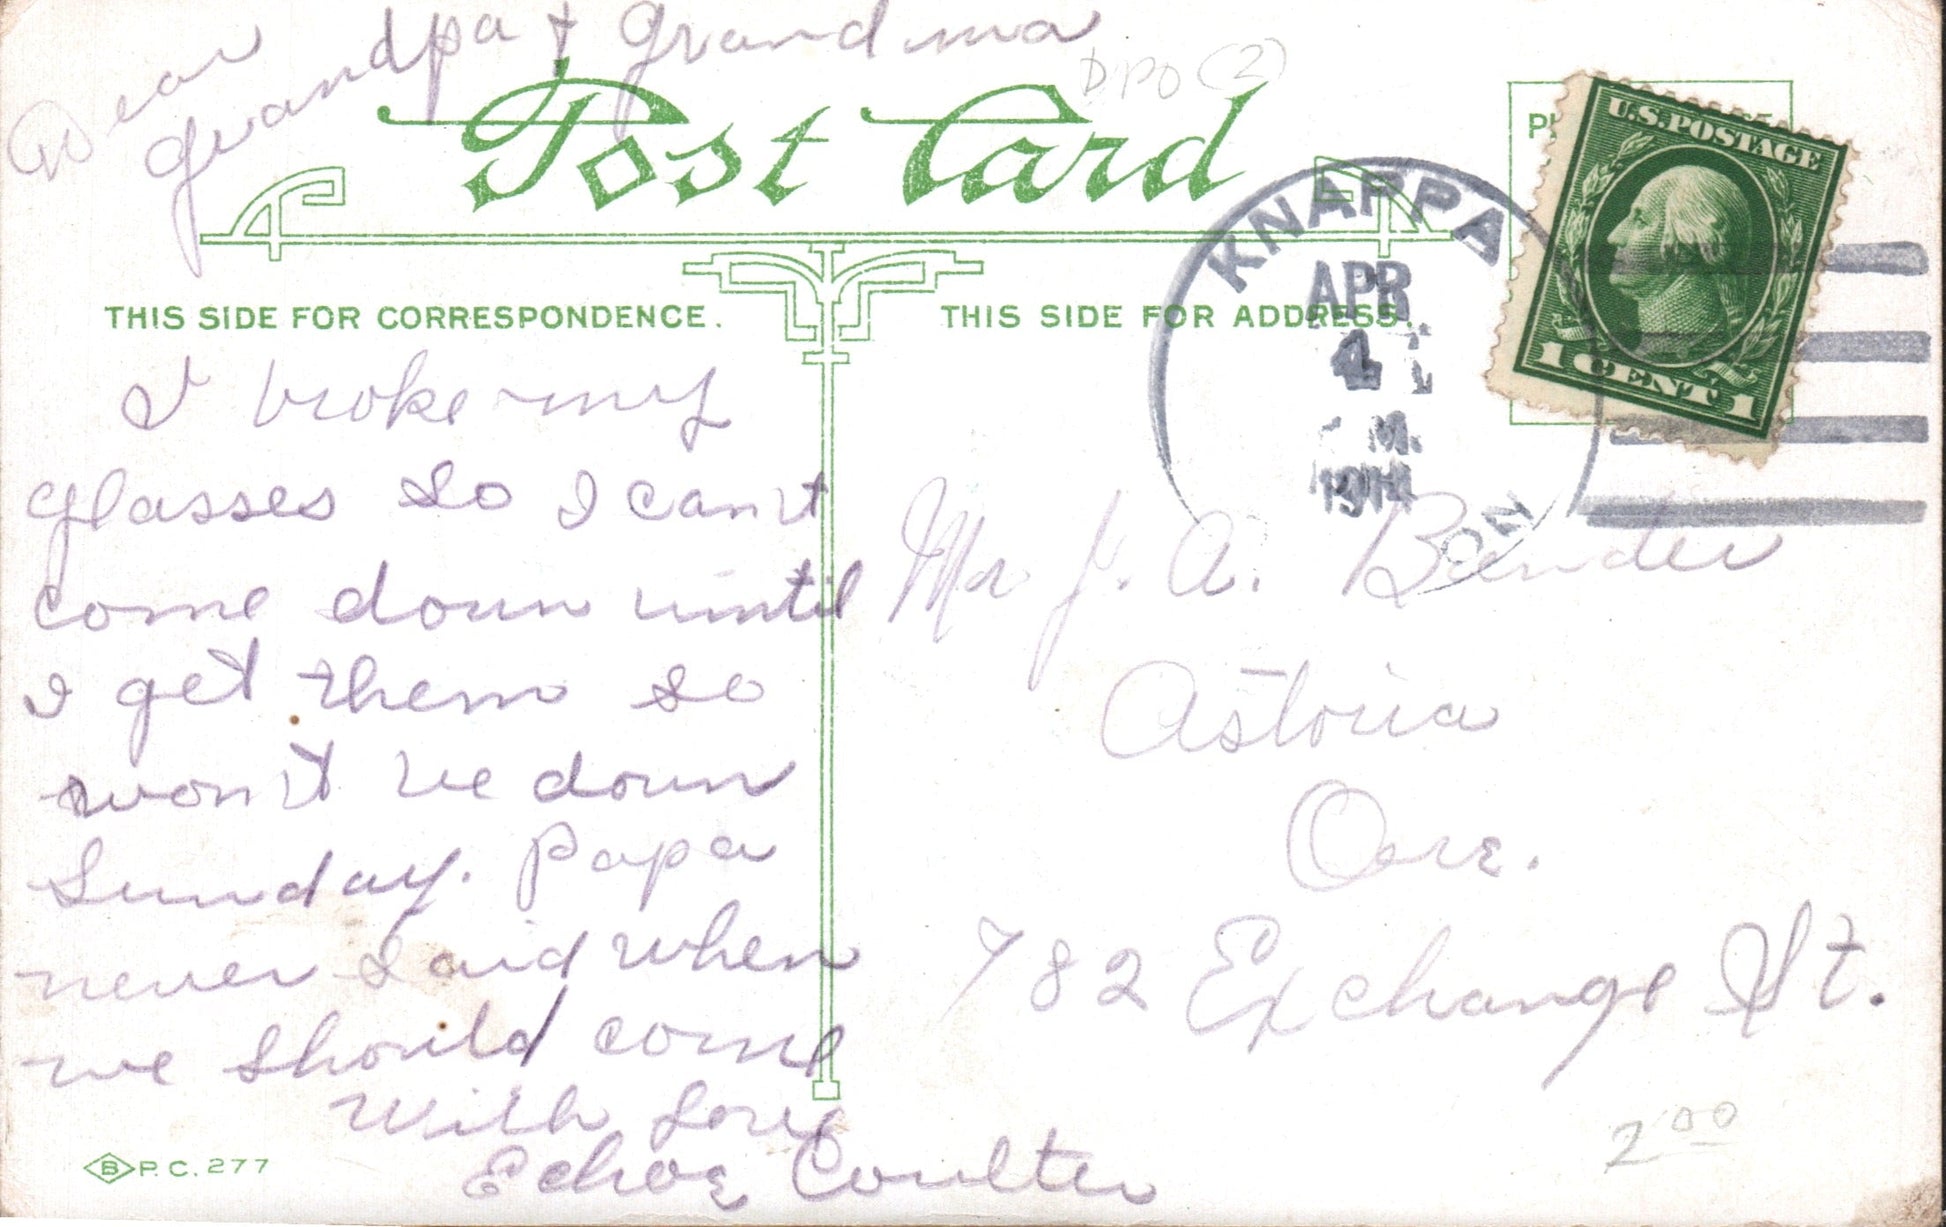 Dear Grandpa & Grandma
DPO (2)
Post Card
THIS SIDE FOR CORRESPONDENCE.
THIS SIDE FOR ADDRESS.
KNAPPA
APR
4
M.
ON
U.S. POSTAGE
1 CENT 1
I broke my
glasses so I can't
come down until
I get them so
won't be down
Sunday. Papa
never said when
we should come
With Love
Echo Coulter
Mr J. A. Bander
Astoria
Ore.
782 Exchange St.
2 00
B P. C. 277